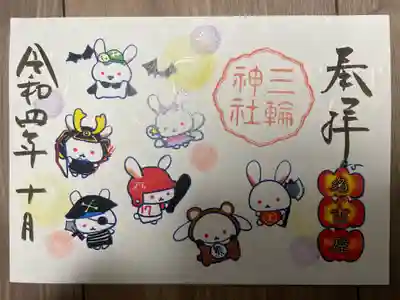 奉拝
名古屋
三輪
神社
令和四年十月